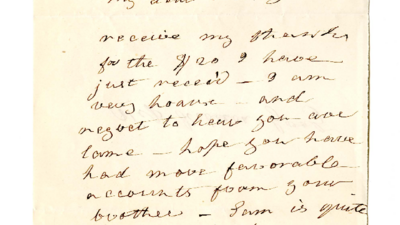 my dear
receive my thanks
for the $20 I have
just receivd – I am
very hoarse – and
regret to hear you are
lame – hope you have
had more favorable
accounts from your
brother – Sam is quite